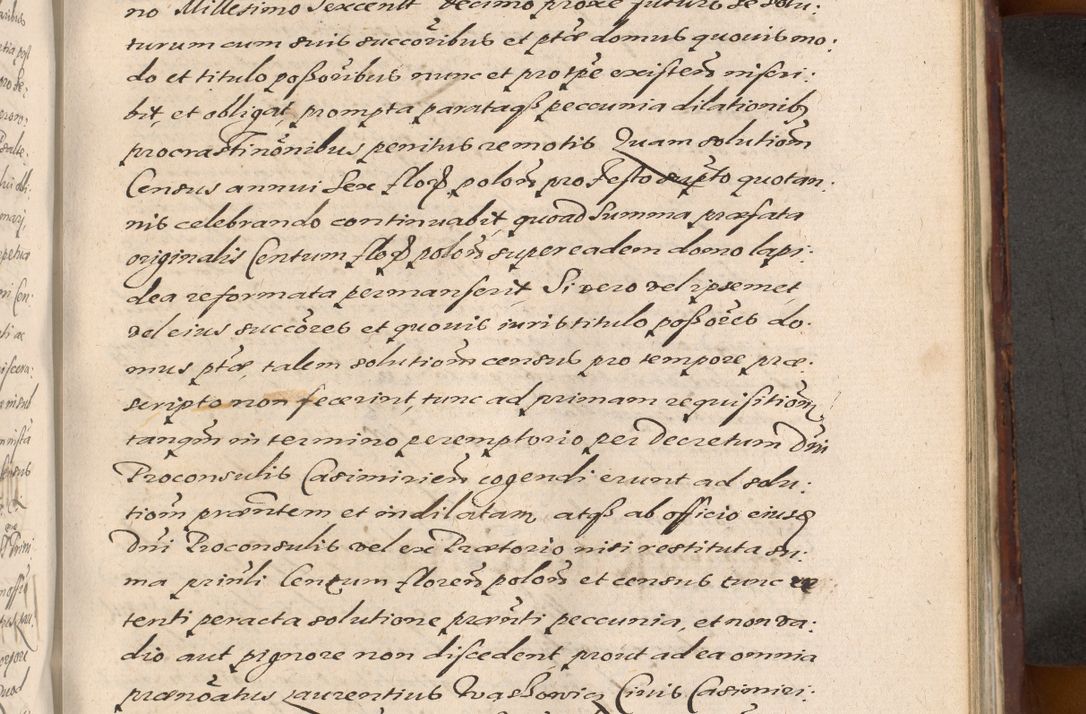 no Millesimo Sexcent̃ decimo proxe futuris se solu:
turum cum suis succõribus et ptæ domus quouis mo:
do et titulo poßoribus nunc et pro tp̃e existeñ inscri:
bit, et obligat prompta parataqß peccunia dilationibꝫ
procrastinõnibus penitus remotis Quam solutiom̃
Census annui Sex floꝝ polon̄ pro Festo scripto quotan:
nis celebrando continuabit, quoad Summa præfata
originalis Centum floꝝ polon̄ super eadem domo lapi:
dea reformata permanserit Si vero vel ipsemet
vel eius succõres et quouis iuris titulo poßores do:
mus ptæ, talem solutiom̃ census pro tempore præ:
scripto non fecerint, tunc ad primam requisitiom̃
tanqm̃ in termino peremptorio per Decretum Dñi
Proconsulis Casimirien̄ cogendi erunt ad solu:
tiom̃ præñtem et indilatam, atqß ab officio eiusꝗ
Dñi Proconsulis vel ex Prætorio nisi restituta su:
ma prinli Centum floren̄ polon̄ et census tunc re
tenti peracta solutione præñti peccunia, et non va:
dio aut pignore non discedent, prout ad ea omnia
prænõatus Laurentius Civis Casimiri: